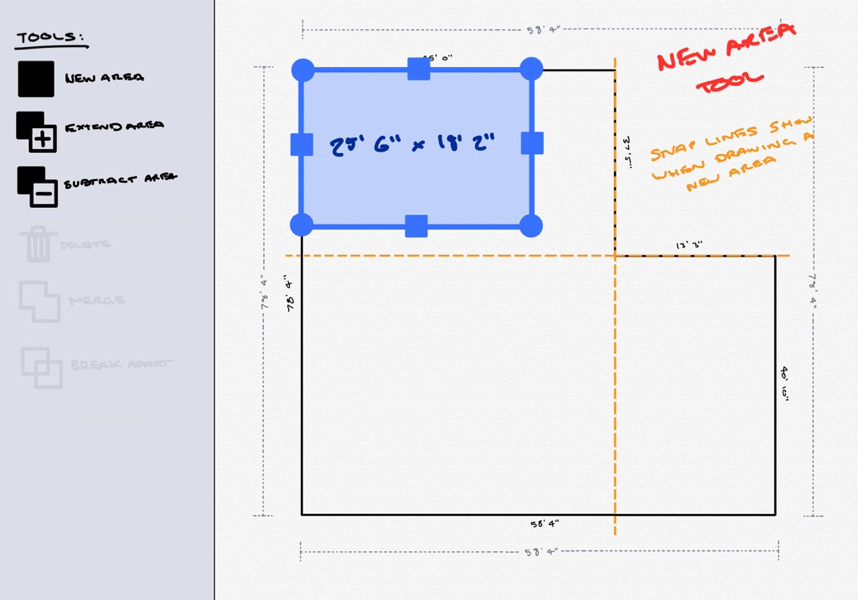 TOOLS:
NEW AREA
EXTEND AREA
SUBTRACT AREA
DELETE
MERGE
BREAK APART
58' 4"
NEW AREA
TOOL
SNAP LINES SHOW
WHEN DRAWING A
NEW AREA
25' 6" x 18' 2"
37' 5"
13' 3"
78' 4"
78' 4"
78' 4"
40' 10"
58' 4"
58' 4"